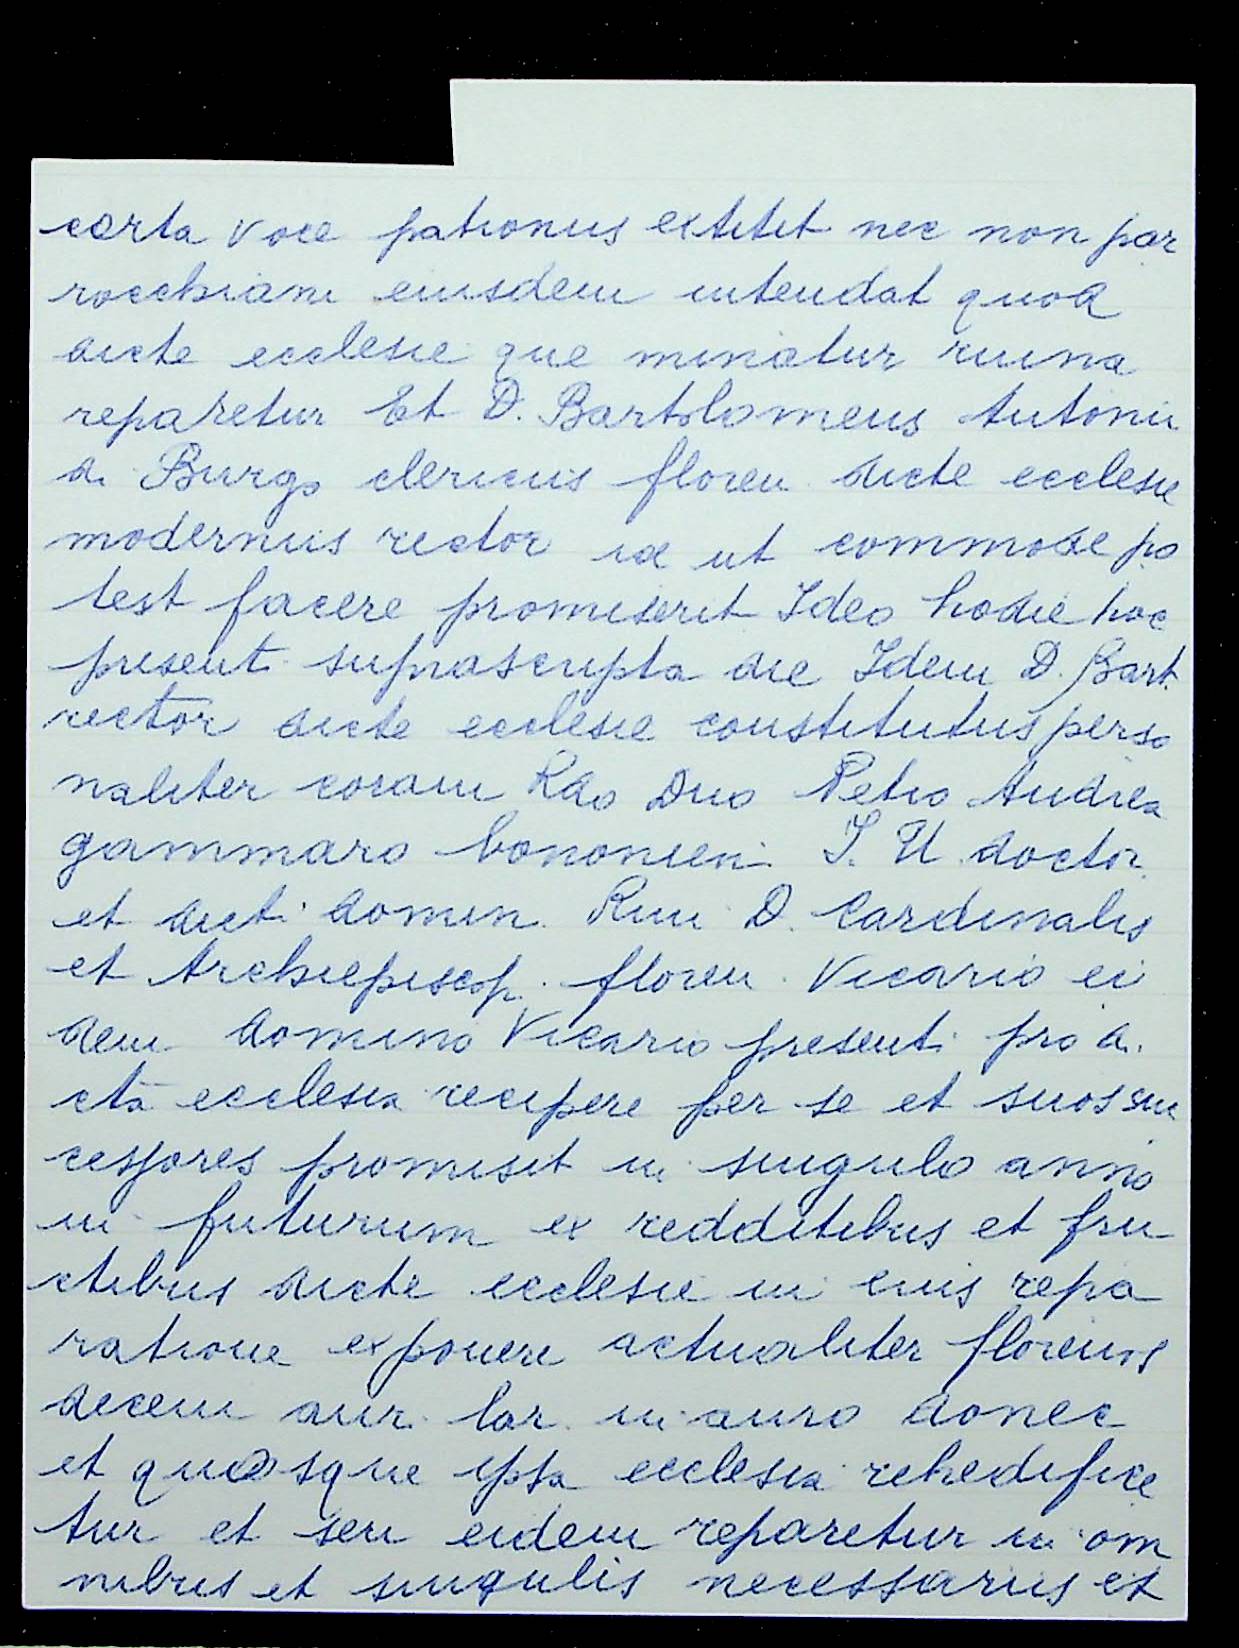 carta voce patronus extitit nec non par
rocchiani eiusdem intendat quod
dicte ecclesie que minatur ruina
reparetur Et D. Bartolomeus Antonii
di Burgo clericus floren. dicte ecclesie
modernus rector id ut commode po
test facere promiserit Ideo hodie hoc
present. suprascripta die Idem D. Bart.
rector dicte ecclesie constitutus perso
naliter coram Rdo Dno Petro Andrea
gammaro bononien. I. U. doctor.
et dict. domin. Rmi D. Cardinalis
et Archiepiscop. floren. Vicario ei
dem domino Vicario presenti pro di
cta ecclesia recipere per se et suos suc
cessores promisit in singulo anno
in futurum ex redditibus et fru
ctibus dicte ecclesie in eius repa
ratione exponere actualiter florenos
decem aur. lar. in auro donec
et quousque ipsa ecclesia rehedifice
tur et seu eidem reparetur in om
nibus et singulis necessariis et